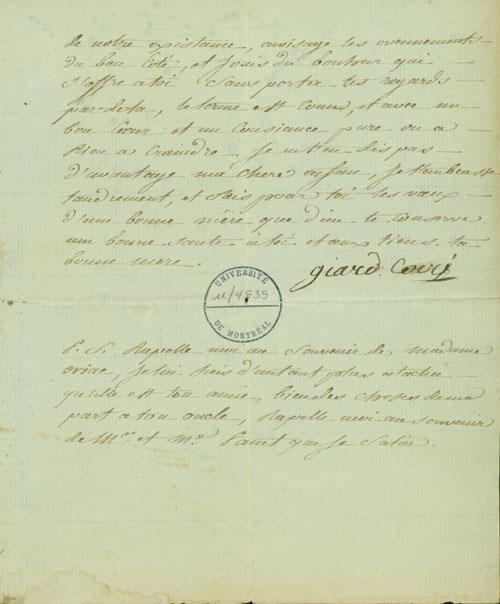 de notre existance, anvisage les evennements
du bon coté, et Jouis du bonheur qui
s'offre a toi sans porter tes regards
par-dela, le terme est connu, et avec un
bon coeur et un Consiance pure on a
Rien a Craindre. Je m'en dis pas
d'avantage ma chere enfan, Je t'embrasse
tandrement, et fais pour toi les voeux
d'une bonne mére que dieu te conserve
une bonne santé a toi et aux tiens ta
bonne mere.
giard
UNIVERSITÉ
u/4535
DE MONTRÉAL
P. S. Rapelle moi au Souvenir de madame
Je lui Suis d'autant plus atachée
qu'elle est ton amie, bien des choses de ma
part a ton oncle, Rapelle moi au souvenir
de Mr. et Me. que Je Salue.